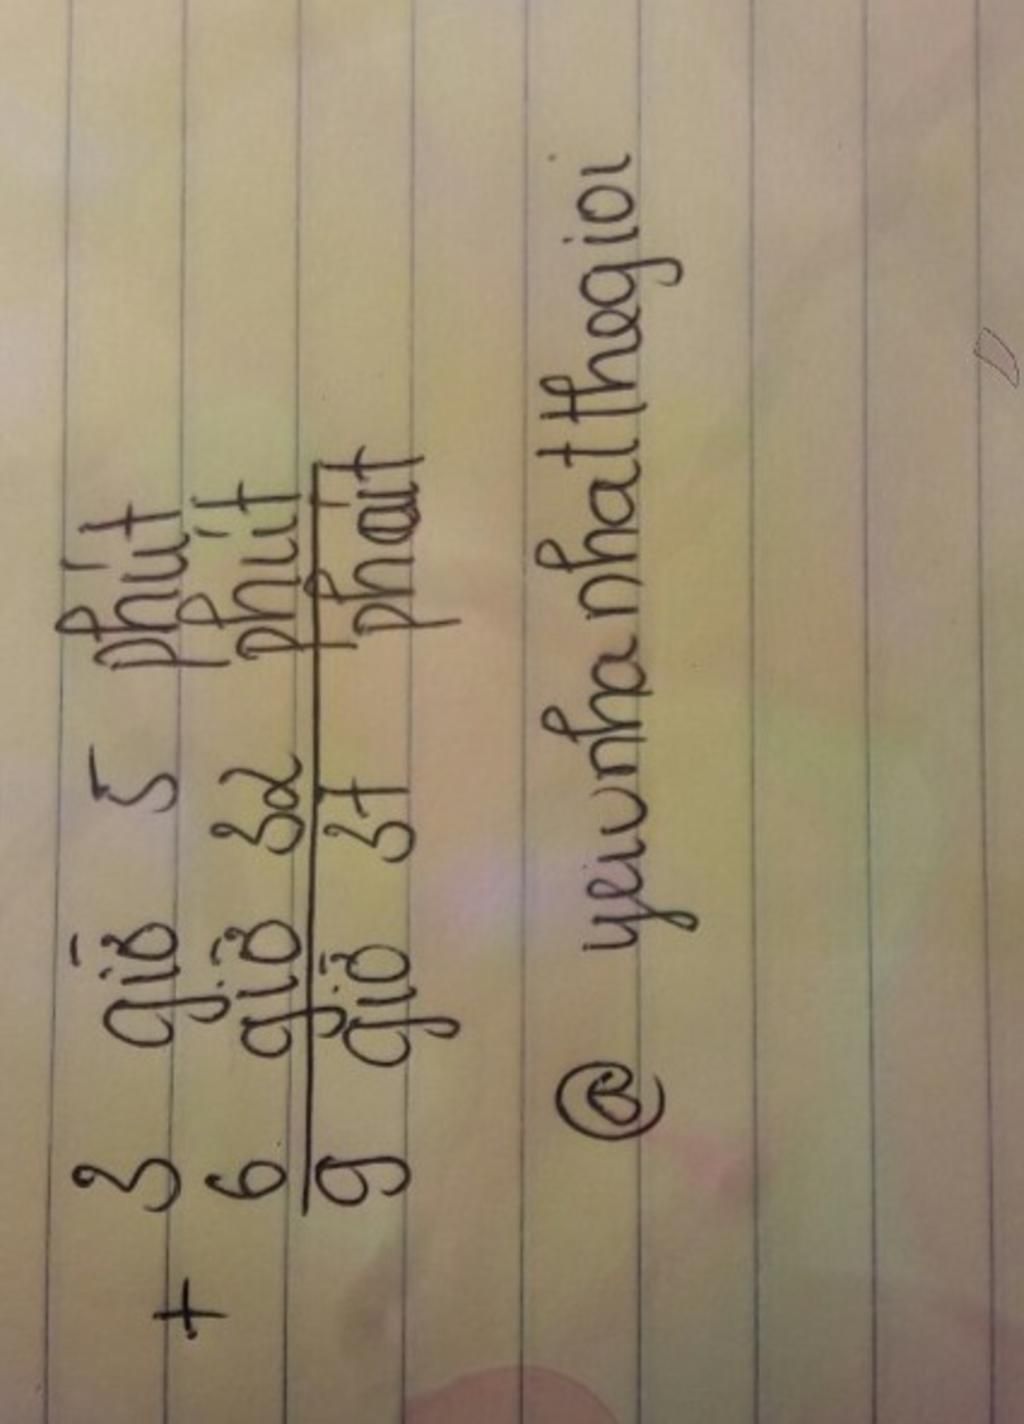 3 giờ 5 phút
+
6 giờ 32 phút
9 giờ 37 phút
@ yeuvnhanhatthegioi